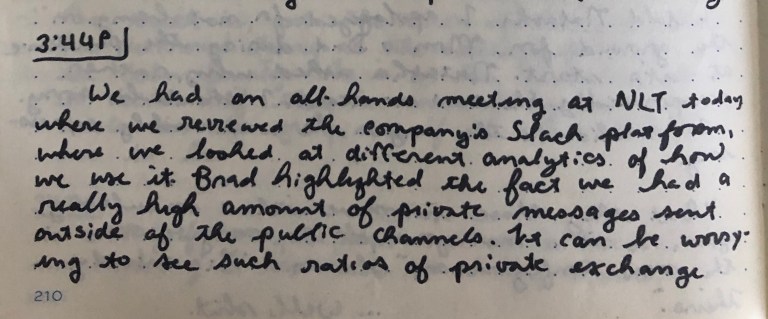 3:44P
We had an all-hands meeting at NLT today
where we reviewed the company's Slack platform,
where we looked at different analytics of how
we use it. Brad highlighted the fact we had a
really high amount of private messages sent
outside of the public channels. It can be worry-
ing to see such ratios of private exchange
210